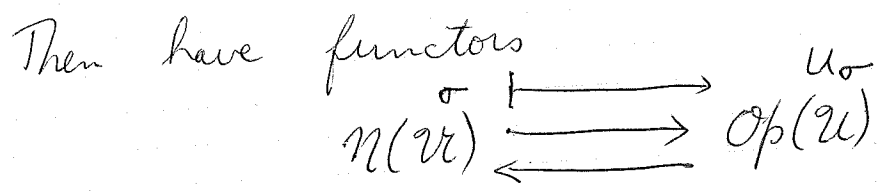 Then have functors
σ ⟼ U_σ
η(𝒰) ⇄ Op(𝒰)